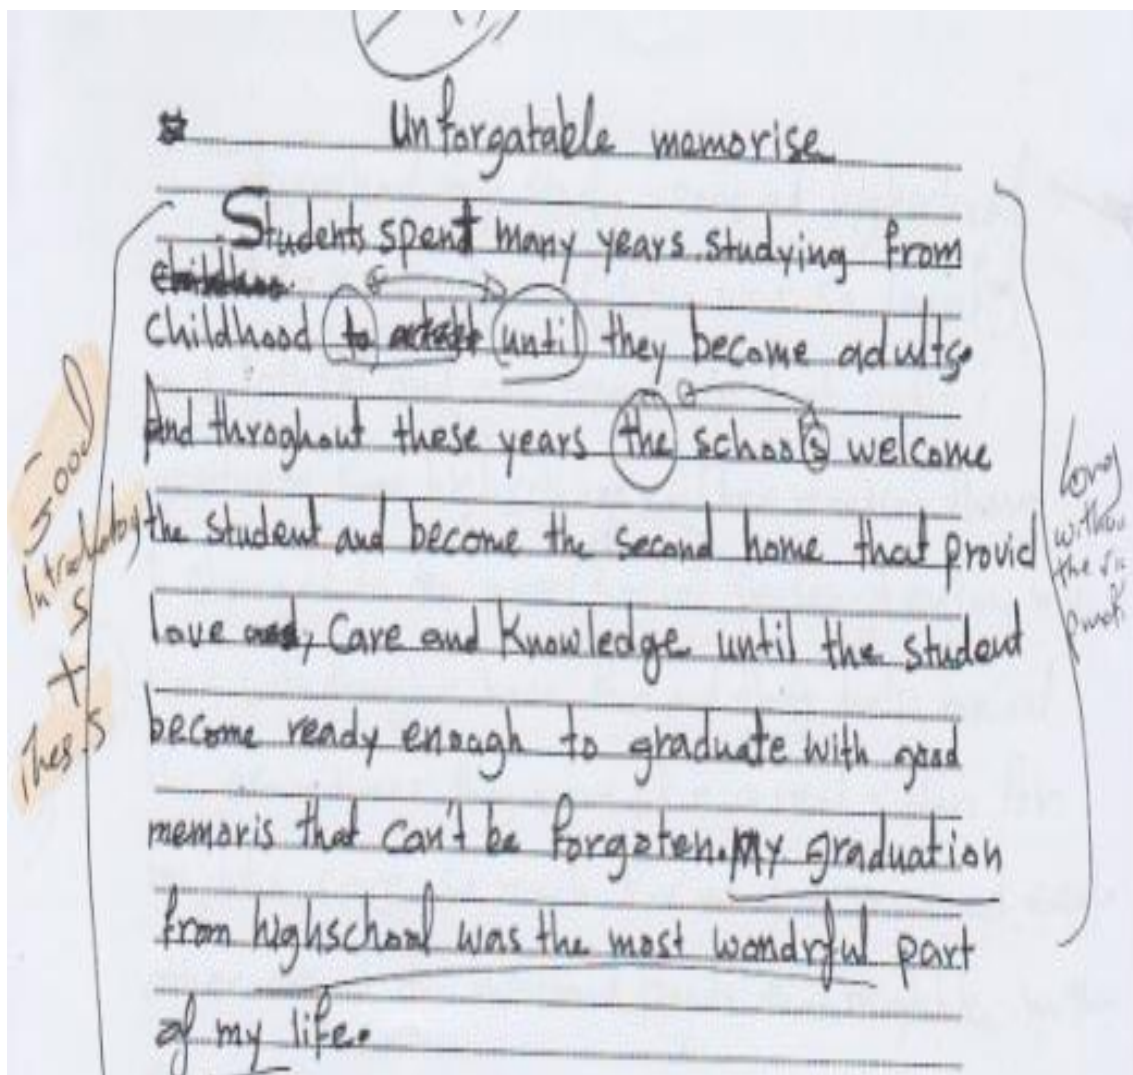 Unforgatable memorise
Students spent many years studying from
childhood to until they become adults.
And throghout these years the schools welcome
the student and become the second home that provid
love, Care and Knowledge until the student
become ready enough to graduate with good
memoris that can't be forgoten. My graduation
from highschool was the most wondrful part
of my life.
Good
Introductory
+
Thesis
Long
withou
the